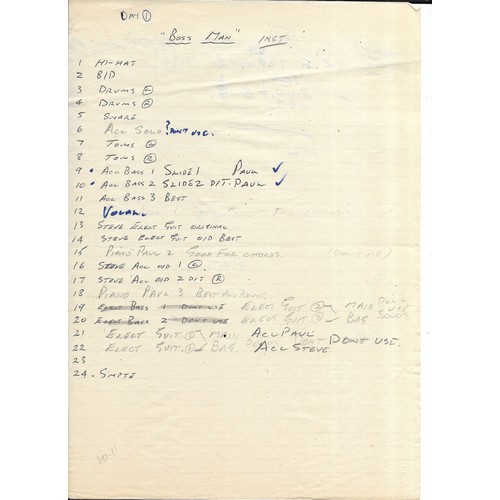 DAY ①
"BOSS MAN" INST
1 HI-HAT
2 B/D
3 DRUMS Ⓛ
4 DRUMS Ⓡ
5 SNARE
6 ACC SOLO? DON'T USE.
7 TOMS Ⓛ
8 TOMS Ⓡ
9 • ACC BASS 1 SLIDE 1 PAUL ✓
10 • ACC BASS 2 SLIDE 2 DIT. PAUL ✓
11 ACC BASS 3 BEST
12 VOCAL
13 STEVE ELECT GUIT ORIGINAL
14 STEVE ELECT GUT O/D BEST
15 PIANO PAUL 2 GOOD FOR CHORDS.
16 STEVE ACC O/D 1 Ⓛ
17 STEVE ACC O/D 2 DIT Ⓡ
18 PIANO PAUL 3 BEST ALL ROUND
19 ELECT BASS 1 DON'T USE ELECT GUIT ② MAIN DON'T USE
20 ELECT BASS 2 DON'T USE ELECT GUIT ② BAG SOLOS
21 ELECT GUIT ① MAIN ACC PAUL DONT USE.
22 ELECT GUIT. ① BAG DONT ACC STEVE
23
24 - SMPTE
10-11